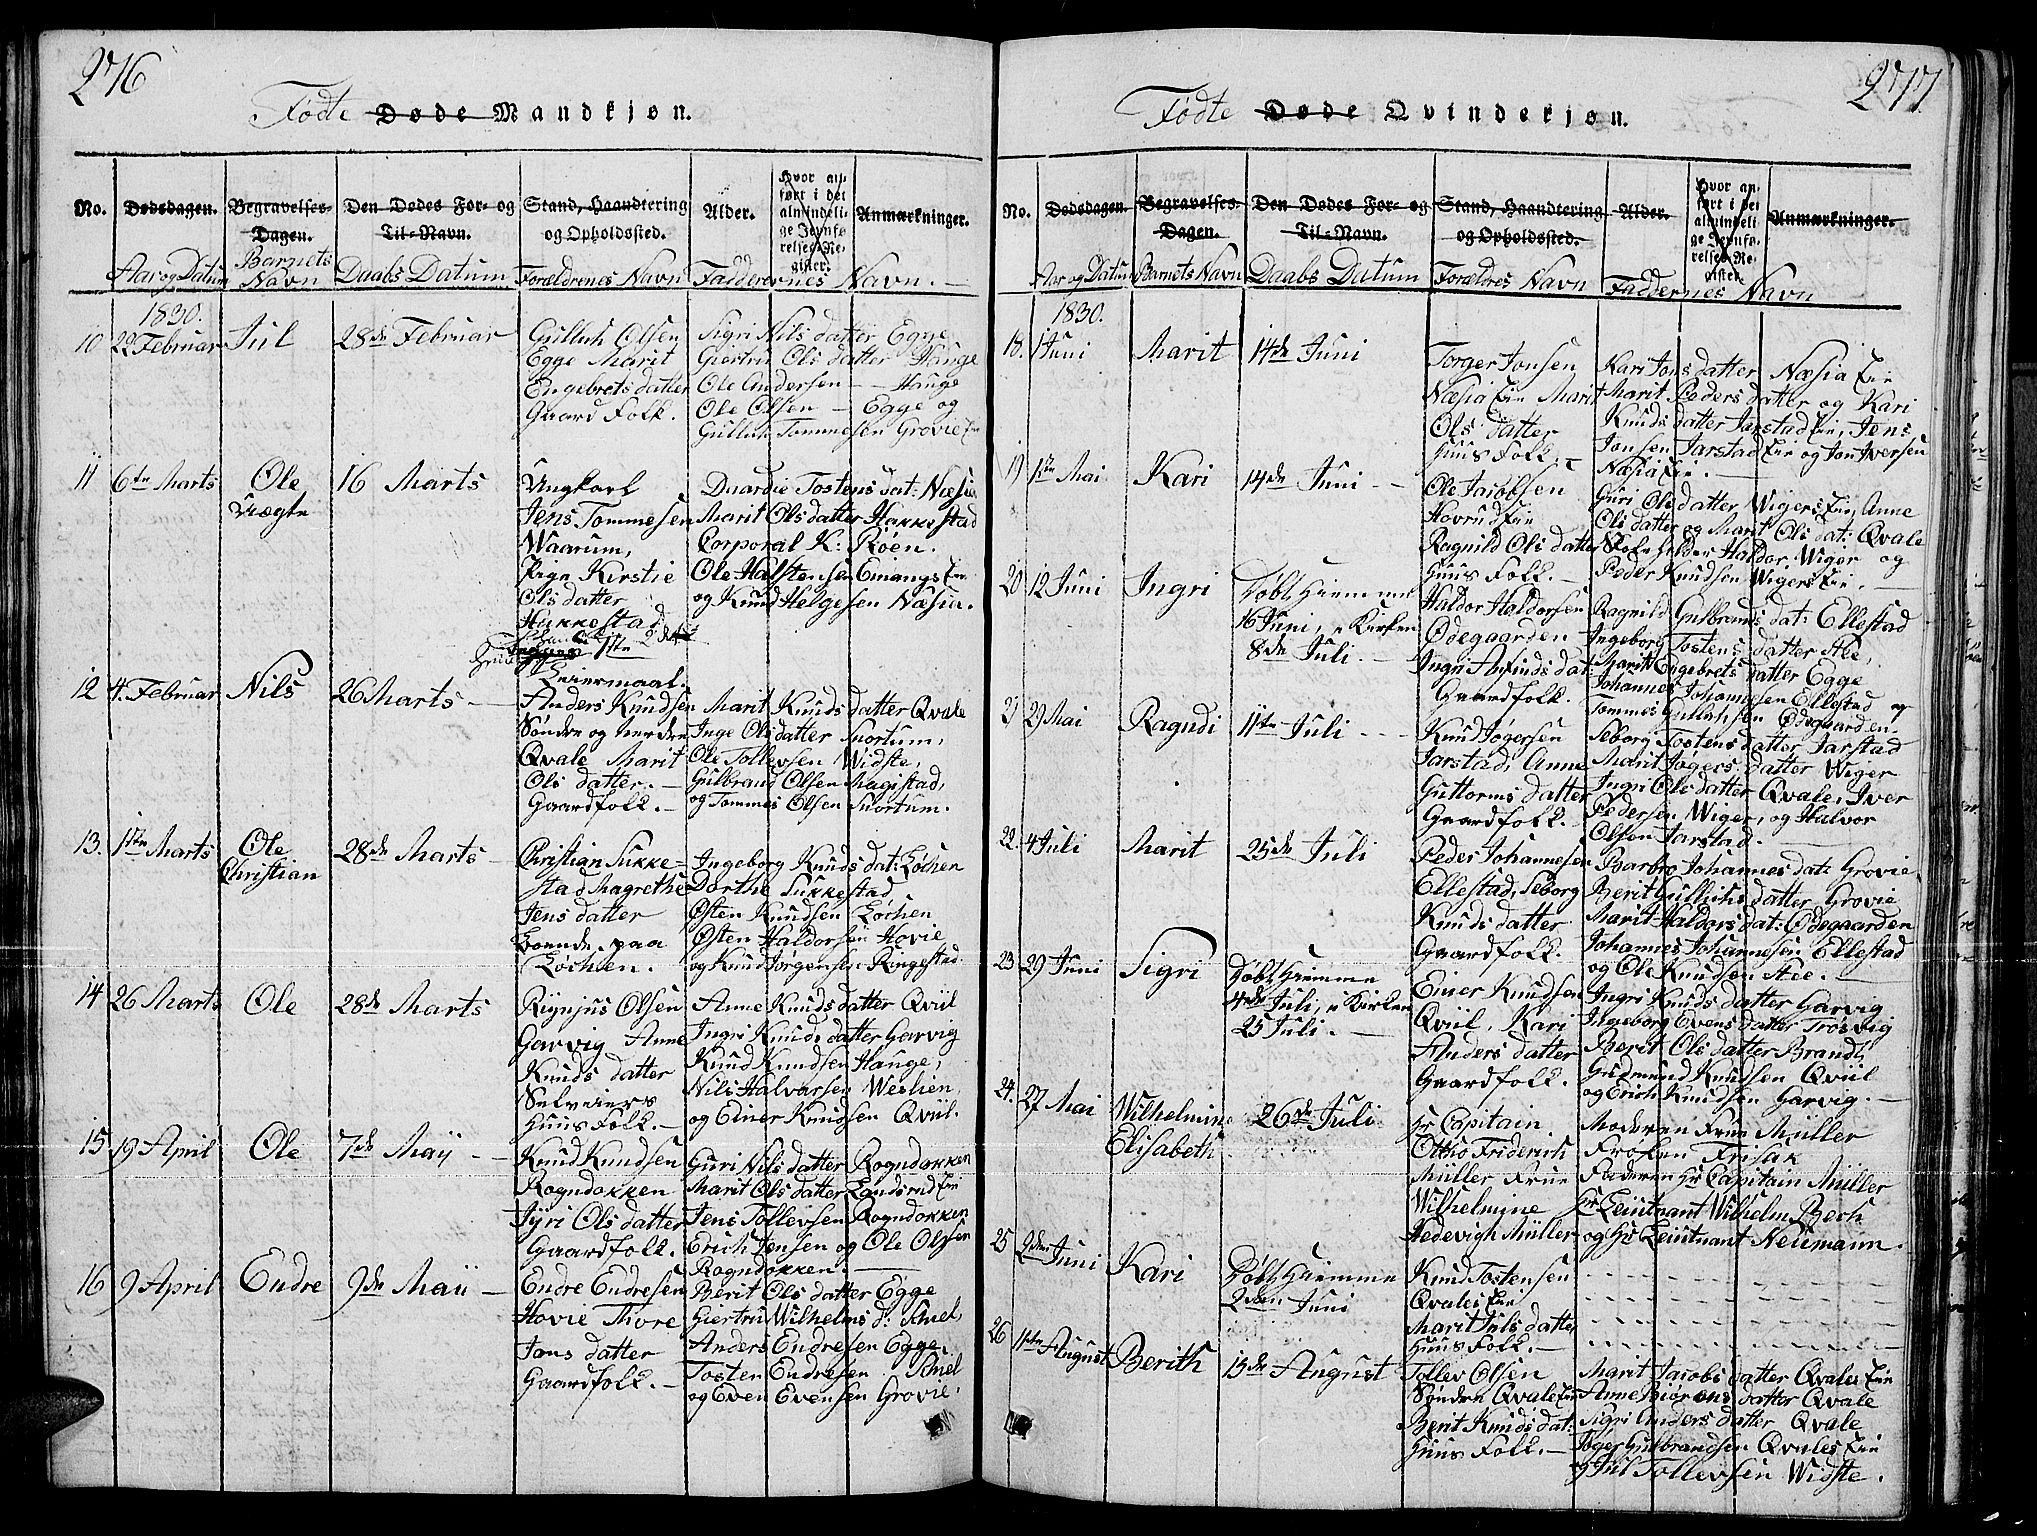 276
Fødte Døde Mandkjøn.
No.
Dødsdagen.
Begravelses-
Dagen.
Den Dødes For- og
Til-Navn.
Stand, Haandtering
og Opholdssted.
Alder.
Hvor an-
ført i det
almindeli-
ge Jevnfø-
relses-Re-
gister.
Anmærkninger.
Aar og Datum
Barnets
Navn
Daabs Datum
Forældrenes Navn
Faddernes Navn.
1830.
10
22 Februar
Jul
28de Februar
Gulluk Olsen
Egge Marit
Engebretsdatter
Gaard Folk.
Sigri Nils datter Egge
Giertru Ols datter Hauge
Ole Andersen - Hauge
Ole Olsen - Egge og
Gulluk Tommesen Grovie Eie
11
6te Marts
Ole
16 Marts
Ungkarl
Jens Tommesen
Waarum,
Pige Kirstie
Ols datter
Hakkestad
1ste
Leiermaal.
Tostens dat: Næsia
Marit Ols datter Hakkestad
Corporal K: Röen.
Ole Halstensen
og Knud Helgesen Næsia.
12
4. Februar
Nils
26 Marts
Anders Knudsen
Søndre og nerdre
Qvale Marit
Ols datter.
Gaardfolk.
Marit Knuds datter Qvale
Inge Olsdatter Snortum,
Ole Tollevsen Widste,
Gulbrand Olsen Magistad,
og Tommes Olsen Snortum.
13.
1ste Marts
Ole
Christian
28de Marts
Christian Sukke-
stad Magrethe
Jens datter
Boende paa
Løchen.
Ingeborg Knuds dat: Løchen
Dorthe Sukkestad
Østen Knudsen Løchen
Østen Haldorsen Hovie
og Knud Jørgensen Ringestad
14
26 Marts
Ole
28de Marts
Olsen
Garvig Anne
Knuds datter
Selveiers
Huus Folk.
Anne Knuds datter Qviil
Ingri Knuds datter Garvig
Knud Knudsen Hauge,
Nils Halvorsen Weslien
og Einer Knudsen Qviil.
15
19 April
Ole
7de Maij
Knud Knudsen
Rogndokken
Ols datter
Gaardfolk.
Guri Nils datter Rogndokken
Marit Ols datter
Jens Tollevsen Rogndokken
Erich Jensen og Ole Olsen
Rogndokken.
16
9 April
Endre
9de Maii
Endre Endresen
Hovie Thore
Jons datter
Gaardfolk.
Berit Ols datter Egge
Giertru Wilhelms d:
Anders Endresen Egge
Tosten Endresen
og Even Evensen Grovie.
277
Fødte Døde Qvindekjøn.
No.
Dødsdagen.
Begravelses-
Dagen.
Den Dødes For- og
Til-Navn.
Stand, Haandtering
og Opholdssted.
Alder.
Hvor an-
ført i det
almindeli-
ge Jevnfø-
relses-Re-
gister.
Anmærkninger.
Aar og Datum
Barnets Navn
Daabs Datum
Forældres Navn
Faddernes Navn
1830.
18.
1 Juni
Marit
14de Juni
Torger Jonsen
Næsia Eie Marit
Ols datter
Huus Folk.
Kari Jons datter Næsia Eie
Marit Peders datter og Kari
Knuds datter Jarstad Eie, Jens
Jonsen Jarstad Eie og Jon Iversen
Næsia Eie.
19
1ste Mai
Kari
14de Juni
Ole Jacobsen
Hovrud Eie
Ragnild Ols datter
Huus Folk.
Guri Ols datter Wigers Eie, Anne
Ols datter og Marit Ols dat: Qvale
Haldor Wiger og
Peder Knudsen Wigers Eie.
20
12 Juni
Ingri
Døbt Hiemme
16 Juni, i Kirken
8de Juli.
Haldor Haldorsen
Ødegaarden
Ingri Anfinds dat:
Gaardfolk.
Ragnild Gulbrands dat: Ellestad
Ingeborg Tostens datter Aee,
Marit Engebrets datter Egge
Johannes Johannesen Ellestad og
Tommes Gulluksen Ødegaarden.
21
29 Mai
Ragndi
11te Juli
Knud Jøgersen
Jarstad, Anne
Guttorms datter
Gaardfolk.
Seborg Tostens datter Jarstad
Marit Jøgers datter Wiger
Ingri Ols datter Qvale, Iver
Pedersen Wiger, og Halvor
Olsen Jarstad.
22.
4 Juli
Marit
25de Juli
Peder Johannesen
Ellestad, Seborg
Knuds datter
Gaardfolk.
Barbro Johannes dat: Grovie,
Berit Gulluks datter Grovie
Marit Haldors dat: Ødegaarden
Johannes Johannesen Ellestad
og Ole Knudsen Aee.
23
29 Juni
Sigri
Døbt Hiemme
4de Juli, i Kirken
25 Juli.
Einer Knudsen
Qviil, Kari
Anders datter
Gaardfolk.
Ingri Knuds datter Garvig
Ingeborg Evens datter Trøsvig
Berit Ols datter Brandt,
Gudmund Knudsen Qviil
og Erich Knudsen Garvig.
24.
27 Mai
Wilhelmine
Elisabeth
26de Juli
Hr Capitain
Ottho Friderich
Müller Frue
Wilhelmine
Hedevigh Müller
Moderen Frue Müller
Frøken Frisak
Faderen Hr Capitain Müller
Hr Leiutnant Wilhelm Bech
og Hr Leiutnant Neumann.
25
2den Juni
Kari
Døbt Hiemme
2den Juni
Knud Tostensen
Qvales Eie
Marit Juls datter
Huus Folk.
26
1ste August
Berith
15de August
Tollev Olsen
Søndre Qvale Eie
Berit Knuds dat:
Huus Folk.
Marit Jacobs datter Qvales Eie
Anne Biørens datter Qvale
Sigri Anders datter Qvale
Jøger Gulbrandsen Qvales Eie
og Jul Tollevsen Widste.